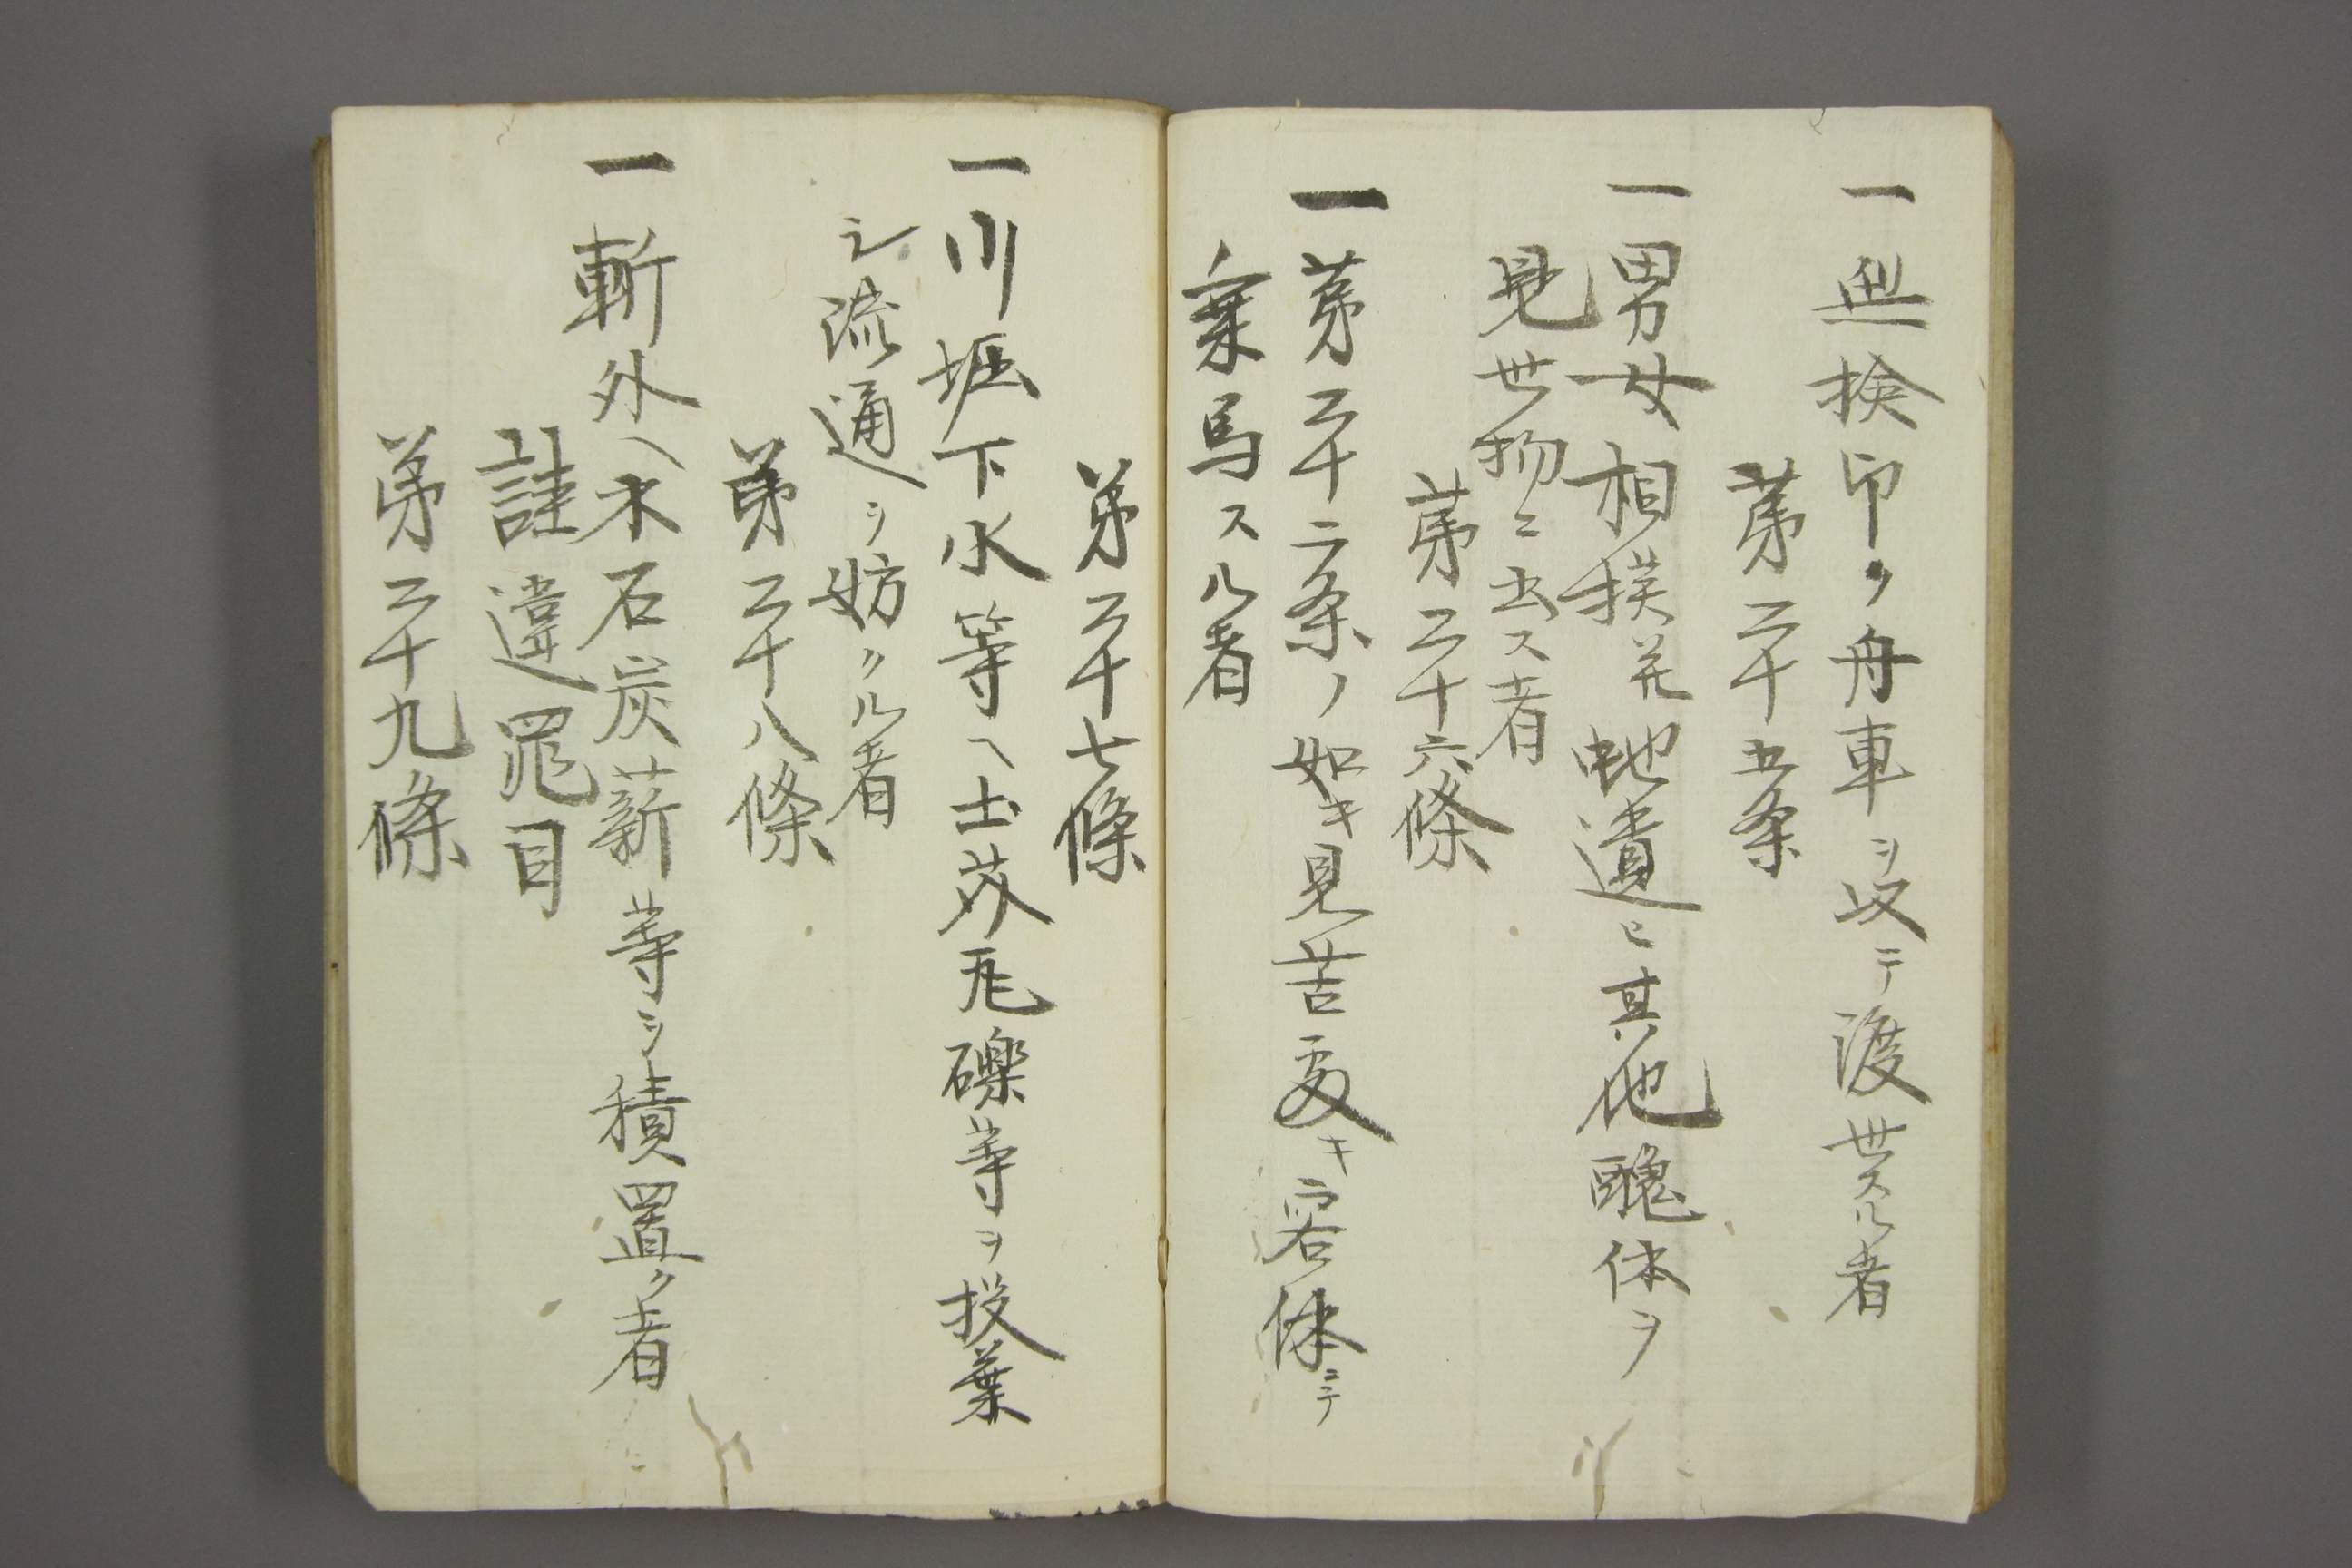 一無検印ノ舟車ヲ以テ渡世スル者
第二十五条
一男女相撲並蛇遣ヒ其他醜体ヲ
見世物ニ出ス者
第二十六條
一第二十二条ノ如キ見苦敷キ容体ニテ
乗馬スル者
第二十七條
一川堀下水等ヘ土芥瓦礫等ヲ投棄
シ流通ヲ妨クル者
第二十八條
一斬外ヘ木石炭薪等ヲ積置ク者
詿違罪目
第二十九條